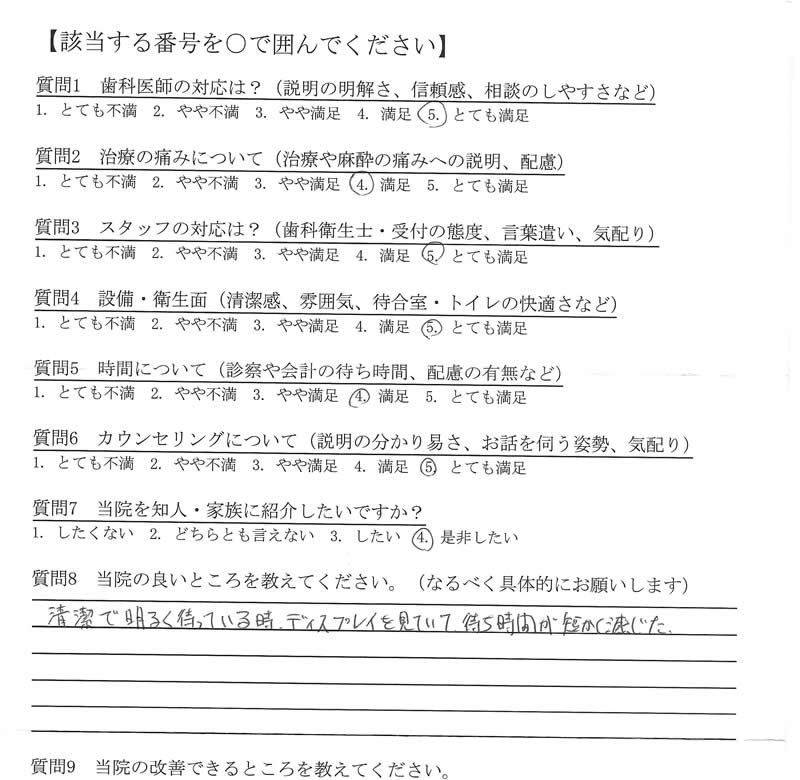 【該当する番号を○で囲んでください】
質問1　歯科医師の対応は？（説明の明解さ、信頼感、相談のしやすさなど）
1. とても不満　2. やや不満　3. やや満足　4. 満足　5. とても満足
質問2　治療の痛みについて（治療や麻酔の痛みへの説明、配慮）
1. とても不満　2. やや不満　3. やや満足　4. 満足　5. とても満足
質問3　スタッフの対応は？（歯科衛生士・受付の態度、言葉遣い、気配り）
1. とても不満　2. やや不満　3. やや満足　4. 満足　5. とても満足
質問4　設備・衛生面（清潔感、雰囲気、待合室・トイレの快適さなど）
1. とても不満　2. やや不満　3. やや満足　4. 満足　5. とても満足
質問5　時間について（診察や会計の待ち時間、配慮の有無など）
1. とても不満　2. やや不満　3. やや満足　4. 満足　5. とても満足
質問6　カウンセリングについて（説明の分かり易さ、お話を伺う姿勢、気配り）
1. とても不満　2. やや不満　3. やや満足　4. 満足　5. とても満足
質問7　当院を知人・家族に紹介したいですか？
1. したくない　2. どちらとも言えない　3. したい　4. 是非したい
質問8　当院の良いところを教えてください。（なるべく具体的にお願いします）
清潔で明るく待っている時、ディスプレイを見ていて、待ち時間が短かく感じた。
質問9　当院の改善できるところを教えてください。